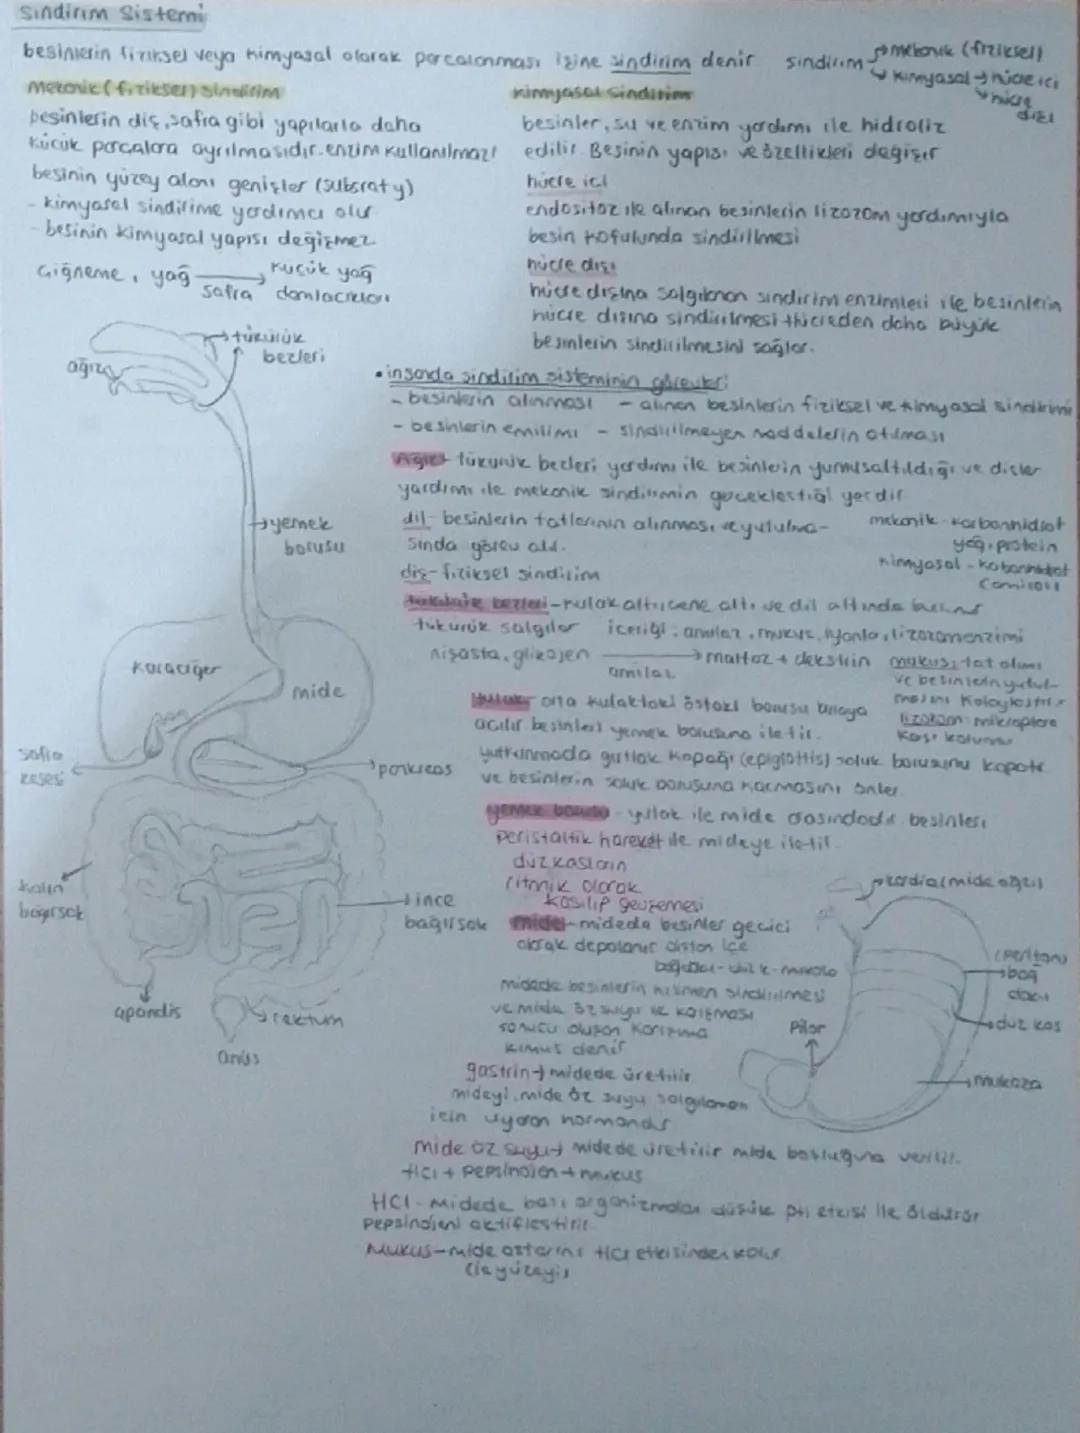 Sindirim Sistemi
besinlerin fiziksel veya kimyasal olarak parçalanması işine sindirim denir
sindirim
mekanik (fiziksel)
kimyasal → hücre içi
hücre dışı
mekanik (fiziksel) sindirim
besinlerin diş, safra gibi yapılarla daha
küçük parçalara ayrılmasıdır. enzim kullanılmaz!
besinin yüzey alanı genişler (subsraty)
- kimyasal sindirime yardımcı olur
- besinin kimyasal yapısı değişmez
Çiğneme, yağ → küçük yağ
safra damlacıkları
kimyasal sindirim
besinler, su ve enzim yardımı ile hidroliz
edilir. Besinin yapısı ve özellikleri değişir
hücre içi
endositoz ile alınan besinlerin lizozom yardımıyla
besin kofulunda sindirilmesi
hücre dışı
hücre dışına salgılanan sindirim enzimleri ile besinlerin
hücre dışına sindirilmesi hücreden daha büyük
besinlerin sindirilmesini sağlar.
tükürük
bezleri
ağız
yemek
borusu
karaciğer
mide
safra
kesesi
pankreas
kalın
bağırsak
ince
bağırsak
apandis
rektum
anüs
• insanda sindirim sisteminin görevleri
- besinlerin alınması - alınan besinlerin fiziksel ve kimyasal sindirimi
- besinlerin emilimi - sindirilmeyen maddelerin atılması
Ağız - tükürük bezleri yardımı ile besinlerin yumuşatıldığı ve dişler
yardımı ile mekanik sindirimin gerçekleştiği yerdir
dil - besinlerin tatlarının alınması ve yutulma-
sında görev alır.
diş - fiziksel sindirim
mekanik - karbonhidrat
yağ, protein
kimyasal - karbonhidrat
tükürük bezleri - kulakaltı, çene altı ve dil altında bulunur
tükürük salgılar içeriği: amilaz, mukus, iyonlar, lizozom enzimi
nişasta, glikojen → maltoz + dekstrin
amilaz
mukus: tat alımı
ve besinlerin yutul-
masını kolaylaştırır
lizozom: mikroplara
karşı koruma
Yutak - orta kulaktaki östaki borusu buraya
açılır besinleri yemek borusuna iletir.
yutkunmada gırtlak kapağı (epiglottis) soluk borusunu kapatır
ve besinlerin soluk borusuna kaçmasını önler.
yemek borusu - yutak ile mide arasındadır. besinleri
peristaltik hareket ile mideye iletir.
düz kasların
ritmik olarak
kasılıp gevşemesi
mide - midede besinler geçici
olarak depolanır dıştan içe
bağdoku - düz k - mukoza
midede besinlerin kısmen sindirilmesi
ve mide öz suyu ile karışması
sonucu oluşan karışıma
kimus denir
gastrin → midede üretilir
mideyi, mide öz suyu salgılaması
için uyaran hormondur
mide öz suyu → midede üretilir mide boşluğuna verilir.
HCl + pepsinojen + mukus
HCl - Midede bazı organizmaları düşük pH etkisi ile öldürür
pepsinojeni aktifleştirir
Mukus - mide astarını HCl etkisinden korur
(iç yüzeyi)
kardia (mide ağzı)
(periton)
bağ
doku
düz kas
mukoza
Pilor